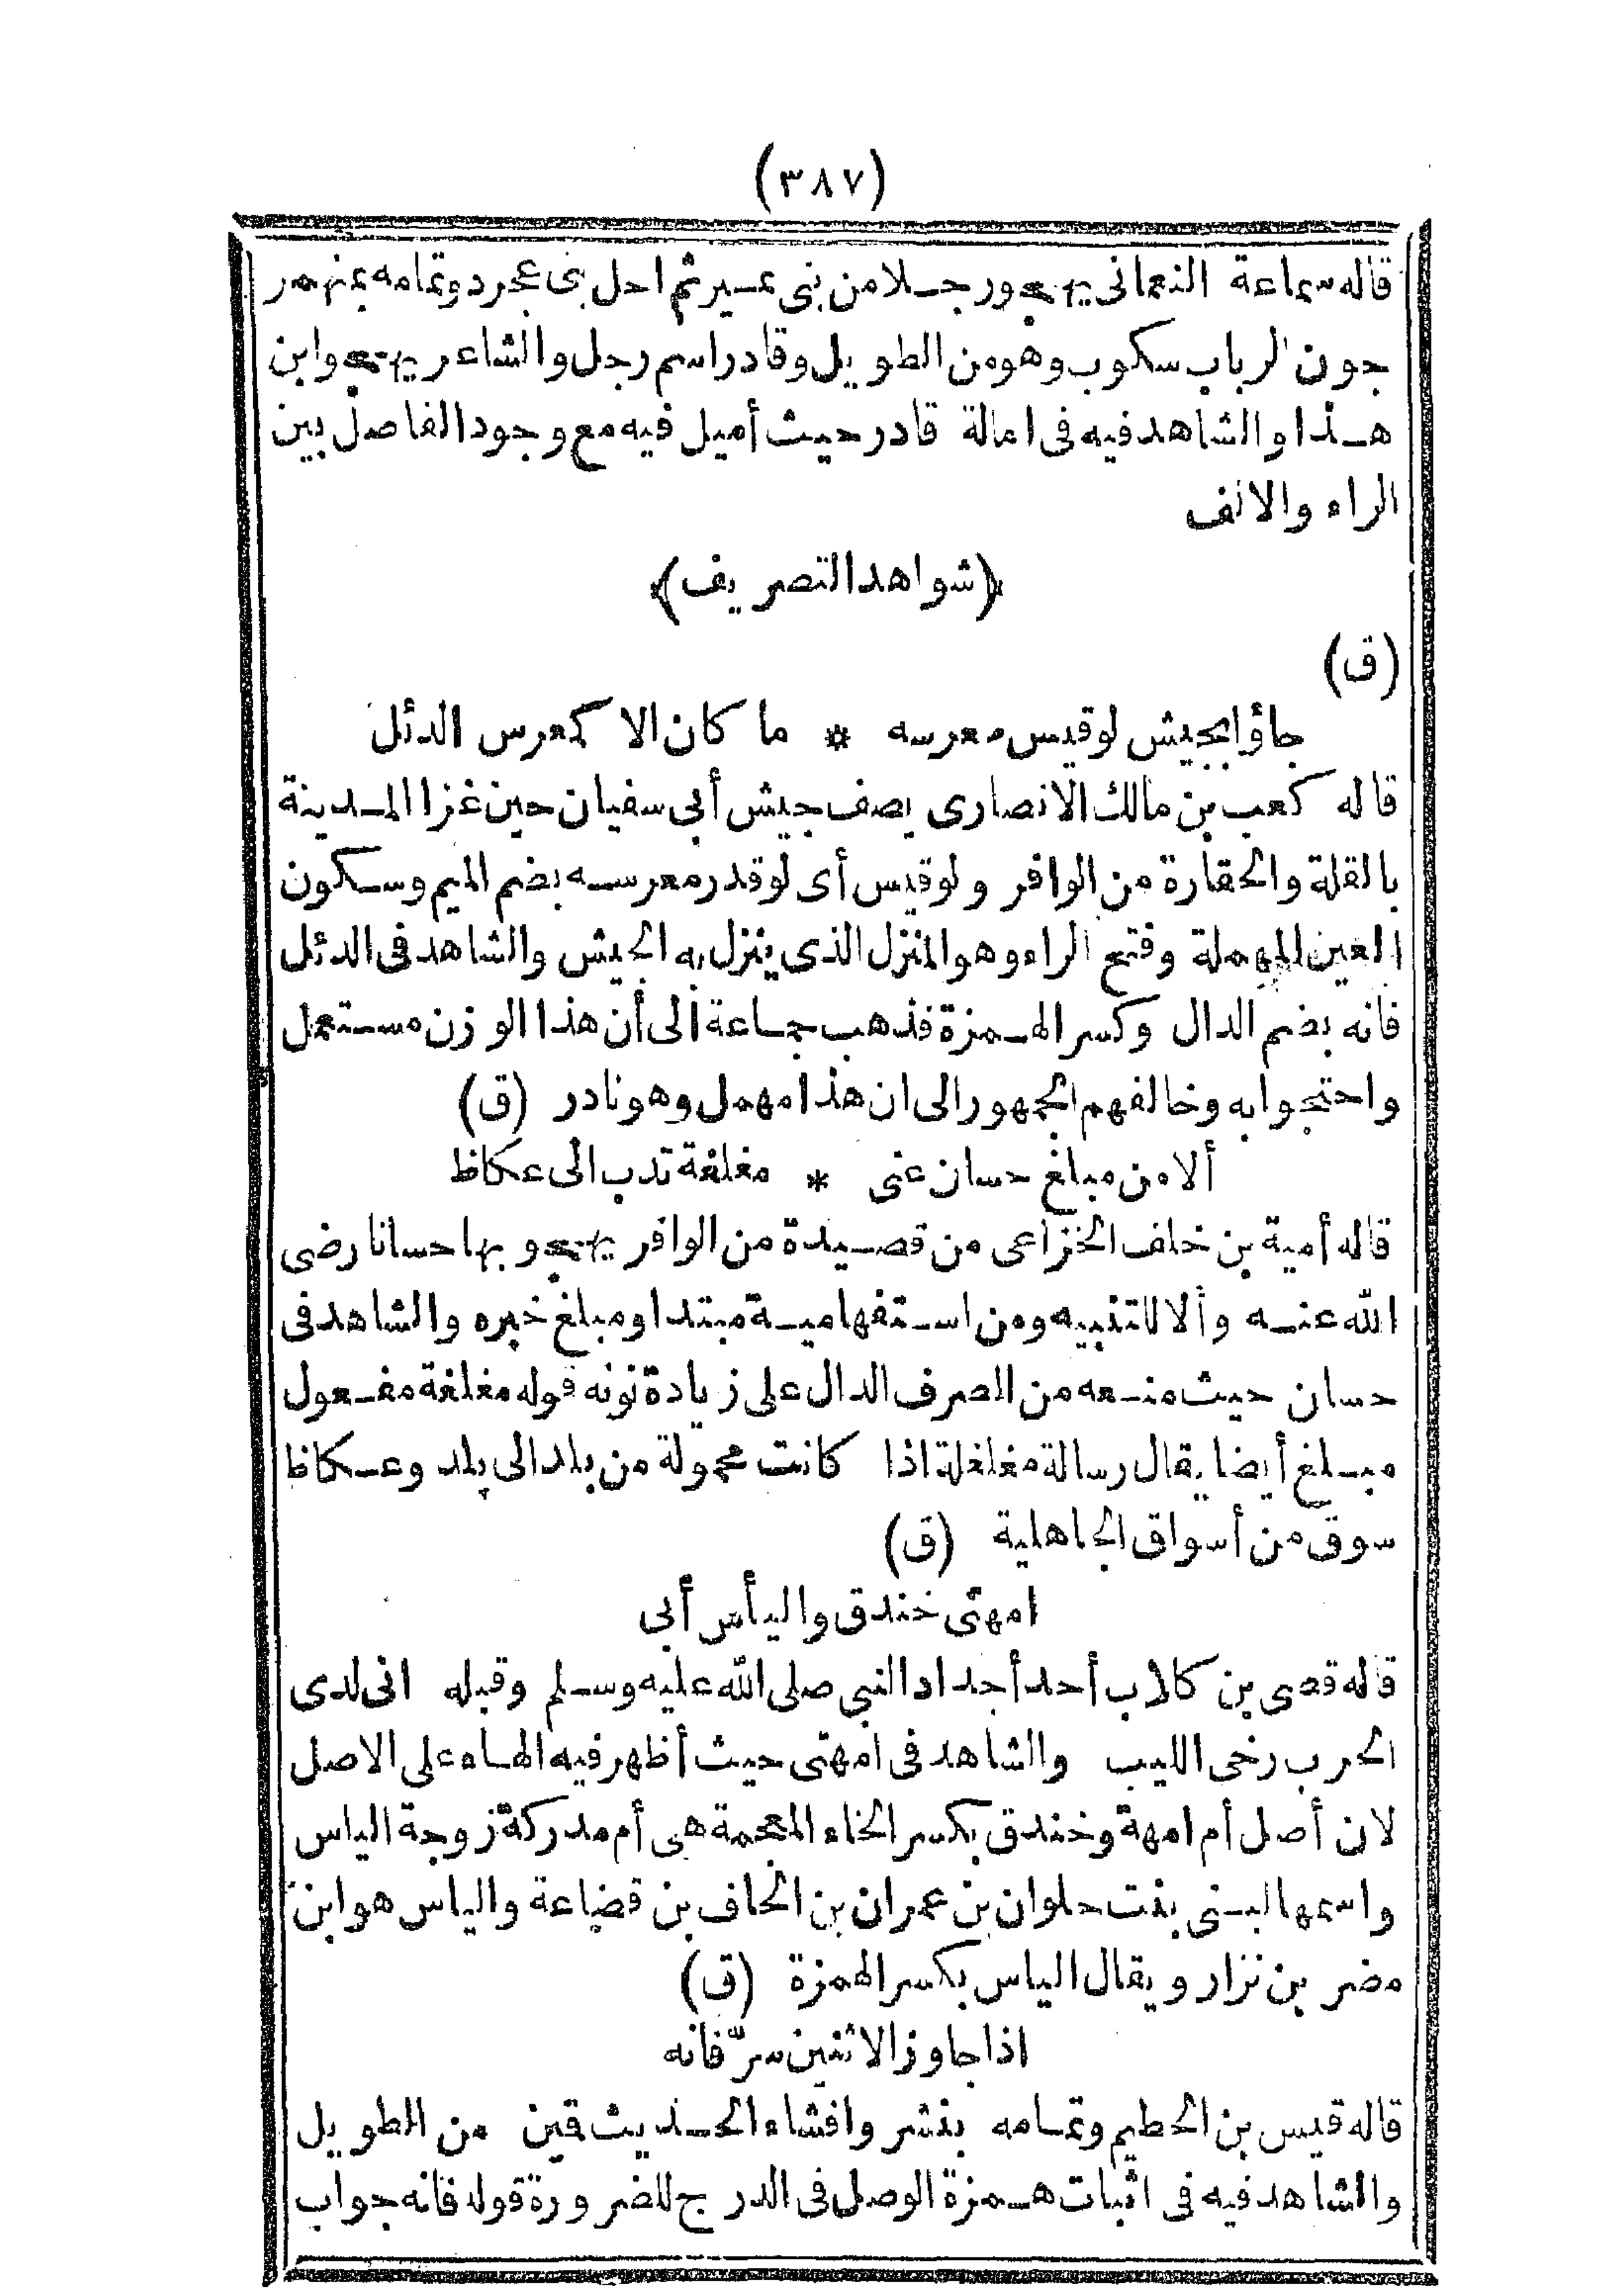 (٣٨٧)
قاله سماعة النعمانى يهجو رجلا من بنى عسير ثم احل بنى عجرد وتمامه بمنهمر
جون الرباب سكوب وهو من الطويل وقادر اسم رجل والشاعر يهجو ابن
هذا والشاهد فيه فى امالة قادر حيث أميل فيه مع وجود الفاصل بين
الراء والالف
(شواهد التصريف)
(ق)
جاؤا بجيش لو قيس معرسه * ما كان الا كمعرس الدئل
قاله كعب بن مالك الانصارى يصف جيش أبى سفيان حين غزا المدينة
بالقلة والحقارة من الوافر ولو قيس أى لو قدر معرسه بضم الميم وسكون
العين المهملة وفتح الراء وهو المنزل الذى ينزل به الجيش والشاهد فى الدئل
فانه بضم الدال وكسر الهمزة فذهب جماعة الى أن هذا الوزن مستعمل
واحتجوا به وخالفهم الجمهور الى ان هذا مهمل وهو نادر (ق)
ألا من مبلغ حسان عنى * مغلغة تدب الى عكاظ
قاله أمية بن خلف الخزاعى من قصيدة من الوافر يهجو بها حسانا رضى
الله عنه وألا للتنبيه ومن استفهامية مبتدا ومبلغ خبره والشاهد فى
حسان حيث منعه من الصرف الدال على زيادة نونه قوله مغلغة مفعول
مبلغ أيضا يقال رسالة مغلغلة اذا كانت محمولة من بلد الى بلد وعكاظ
سوق من أسواق الجاهلية (ق)
امهتى خندق واليأس أبى
قاله قصى بن كلاب أحد أجداد النبى صلى الله عليه وسلم وقبله انى لدى
الحرب رخى اللبب والشاهد فى امهتى حيث أظهر فيه الهاء على الاصل
لان أصل أم امهة وخندق بكسر الخاء المعجمة هى أم مدركة زوجة الياس
واسمها لبنى بنت حلوان بن عمران بن الحاف بن قضاعة والياس هو ابن
مضر بن نزار ويقال الياس بكسر الهمزة (ق)
اذا جاوز الاثنين سرّ فانه
قاله قيس بن الحطيم وتمامه بنشر وافشاء الحديث قين من الطويل
والشاهد فيه فى اثبات همزة الوصل فى الدرج للضرورة قوله فانه جواب